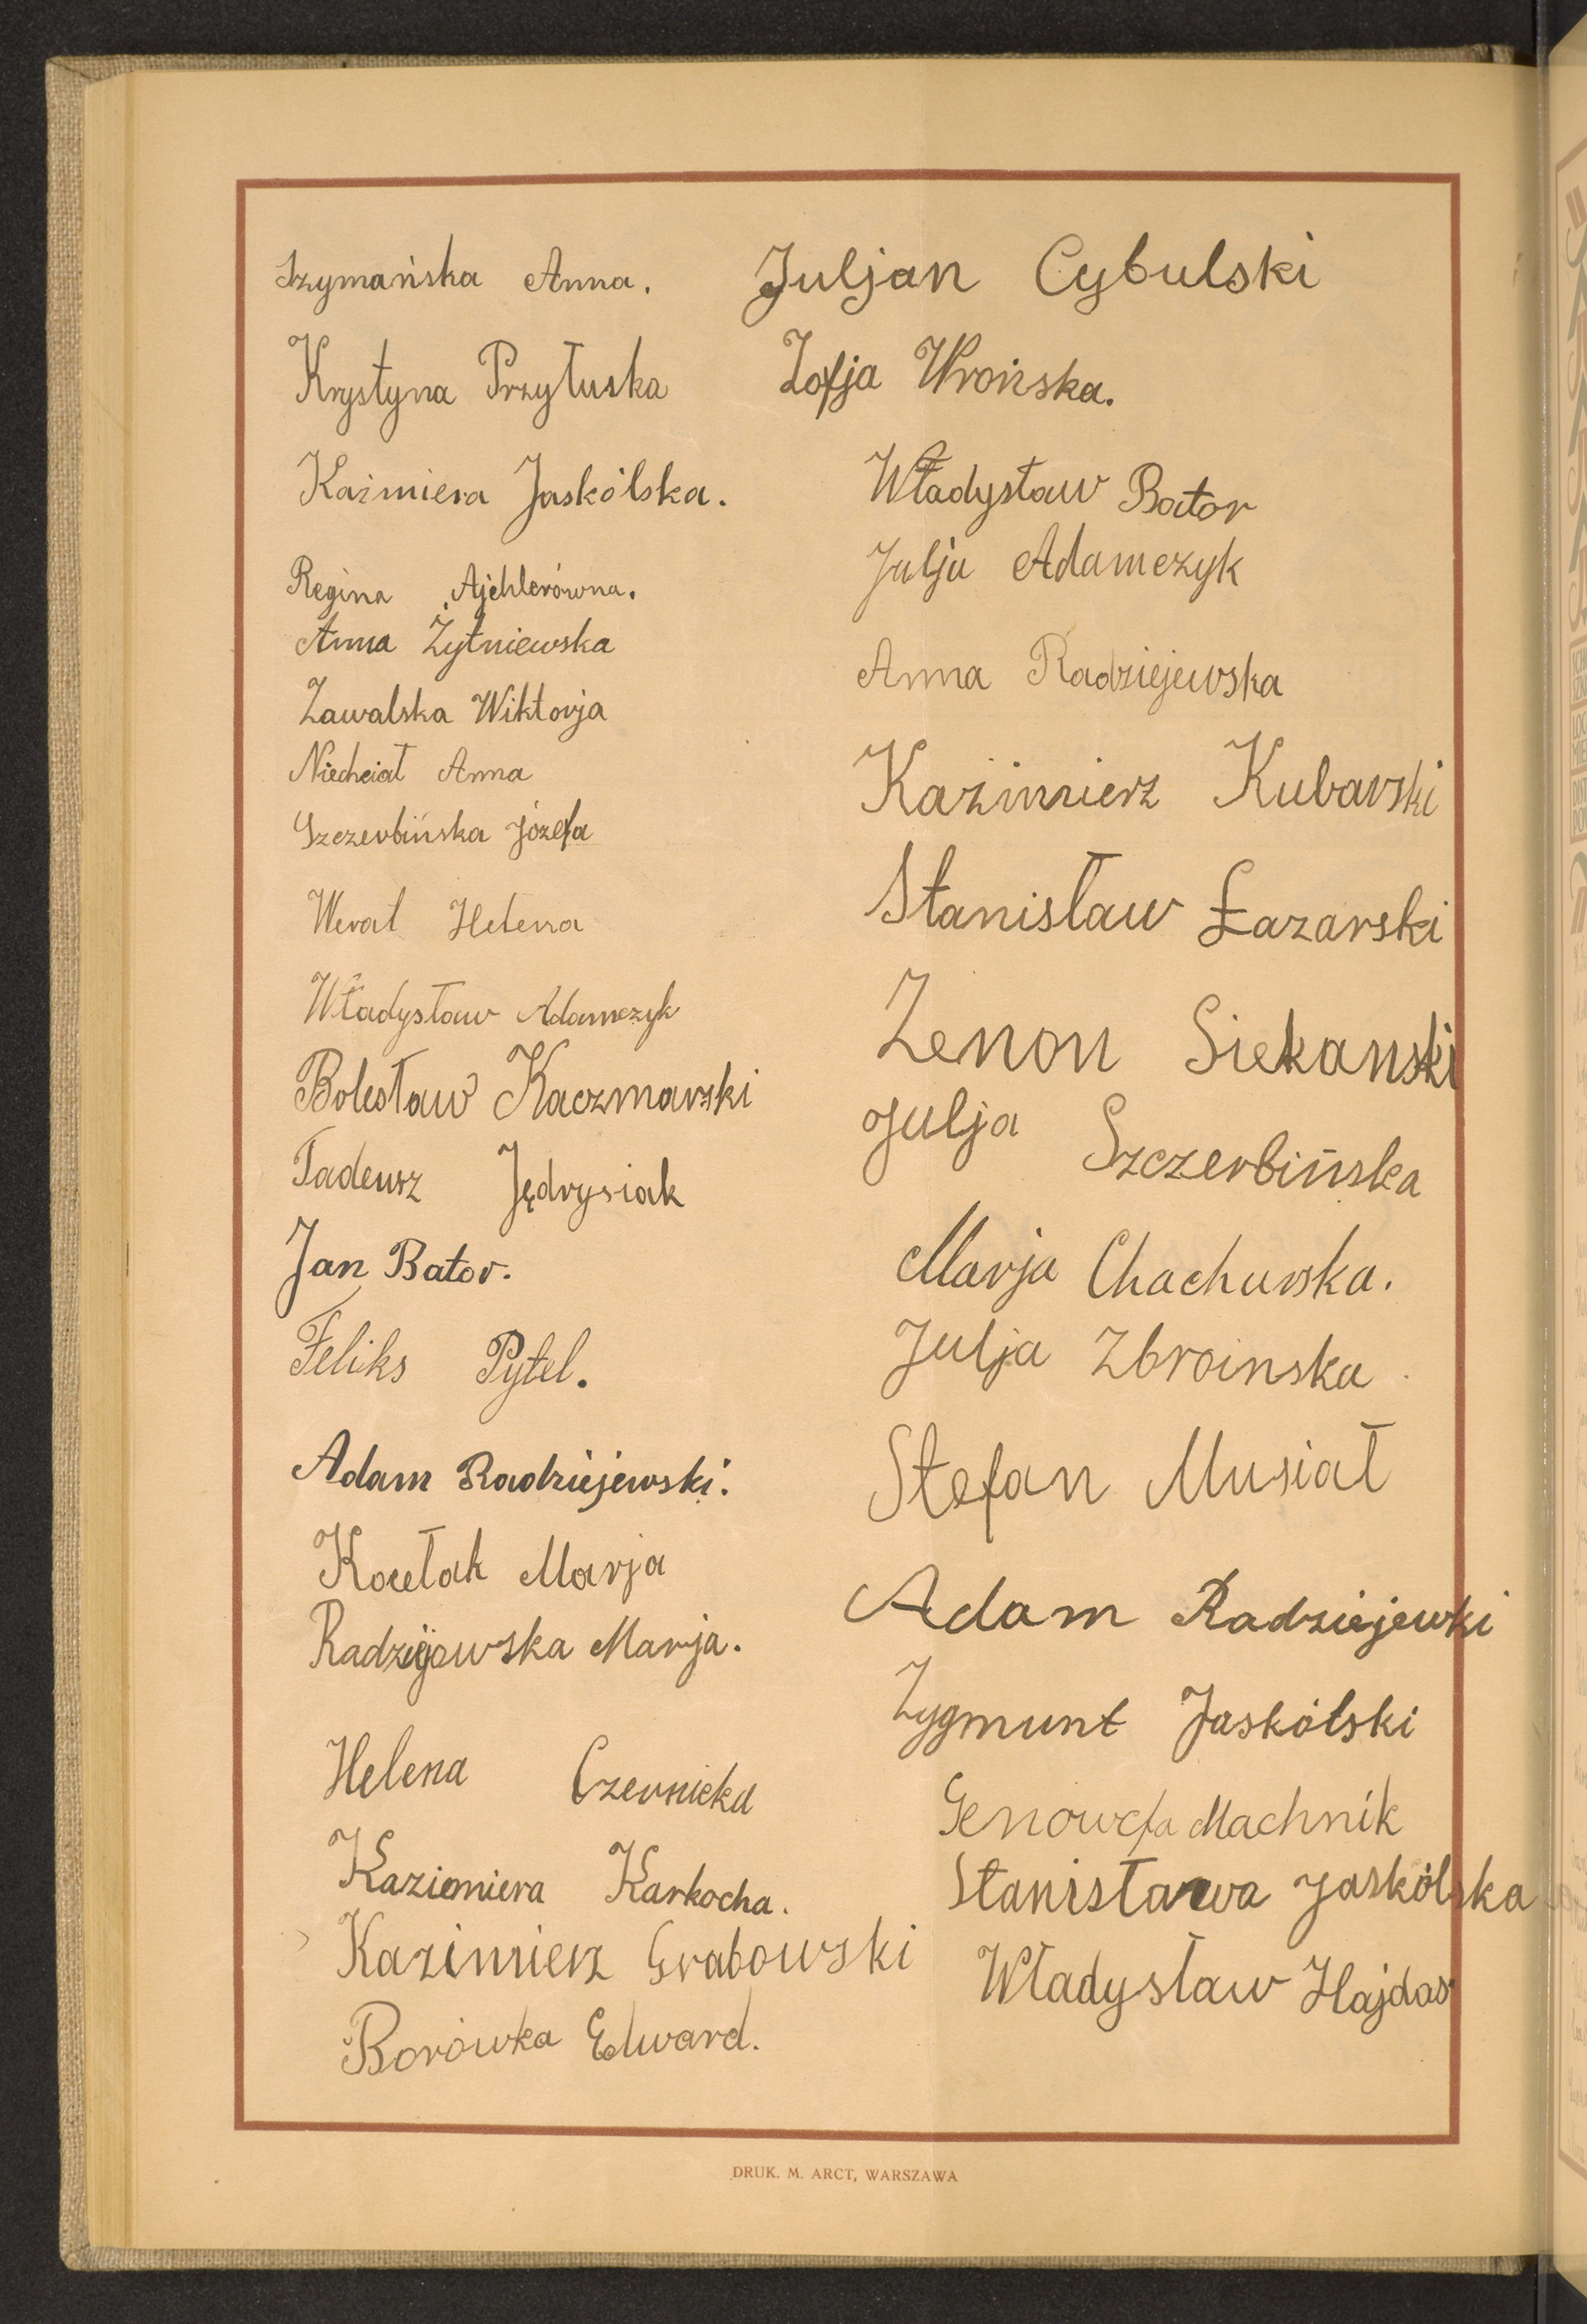 Szymańska Anna.
Krystyna Przyłuska
Kaźmiera Jaskólska.
Regina Ajchlerówna.
Anna Żytniewska
Zawalska Wiktorja
Niechciał Anna
Szczerbińska Józefa
Werał Helena
Władysław Adamczyk
Bolesław Kaczmarski
Tadeusz Jędrysiak
Jan Bator.
Feliks Pytel.
Adam Radziejewski.
Marja
Radziejewska Marja.
Helena Czernicka
Kazimiera Karkocha.
Kazimierz Grabowski
Borówka Edward.
Juljan Cybulski
Zofja Wrońska.
Władysław Bator
Julja Adamczyk
Anna Radziejewska
Kazimierz Kubarski
Stanisław Łazarski
Zenon Siekanski
Julja Szczerbińska
Marja Chachurska.
Julja Zbroinska
Stefan Musiał
Adam Radziejewki
Zygmunt Jaskólski
Genowefa Machnik
Stanisława Jaskólska
Władysław Hajdas
DRUK. M. ARCT, WARSZAWA